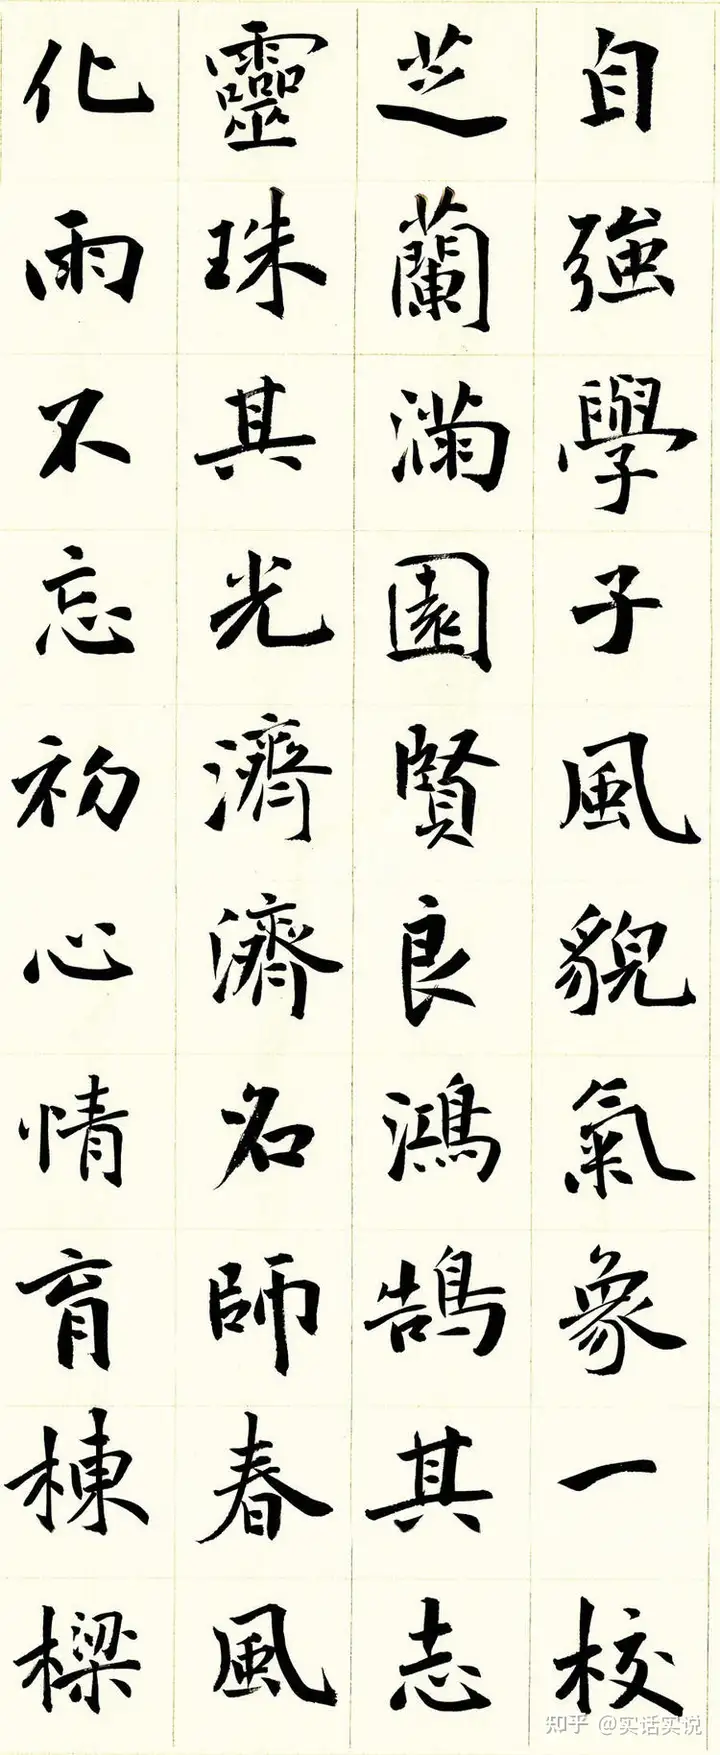 自強學子風貌氣象一校
芝蘭滿園賢良鴻鵠其志
靈珠其光濟濟名師春風
化雨不忘初心情育棟樑
知乎 @实话实说